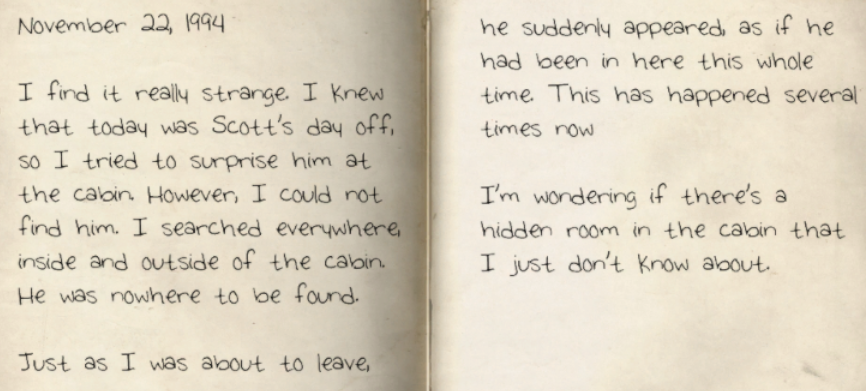 November 22, 1994
I find it really strange. I knew
that today was Scott's day off,
so I tried to surprise him at
the cabin. However, I could not
find him. I searched everywhere,
inside and outside of the cabin.
He was nowhere to be found.
Just as I was about to leave,
he suddenly appeared, as if he
had been in here this whole
time. This has happened several
times now
I'm wondering if there's a
hidden room in the cabin that
I just don't know about.